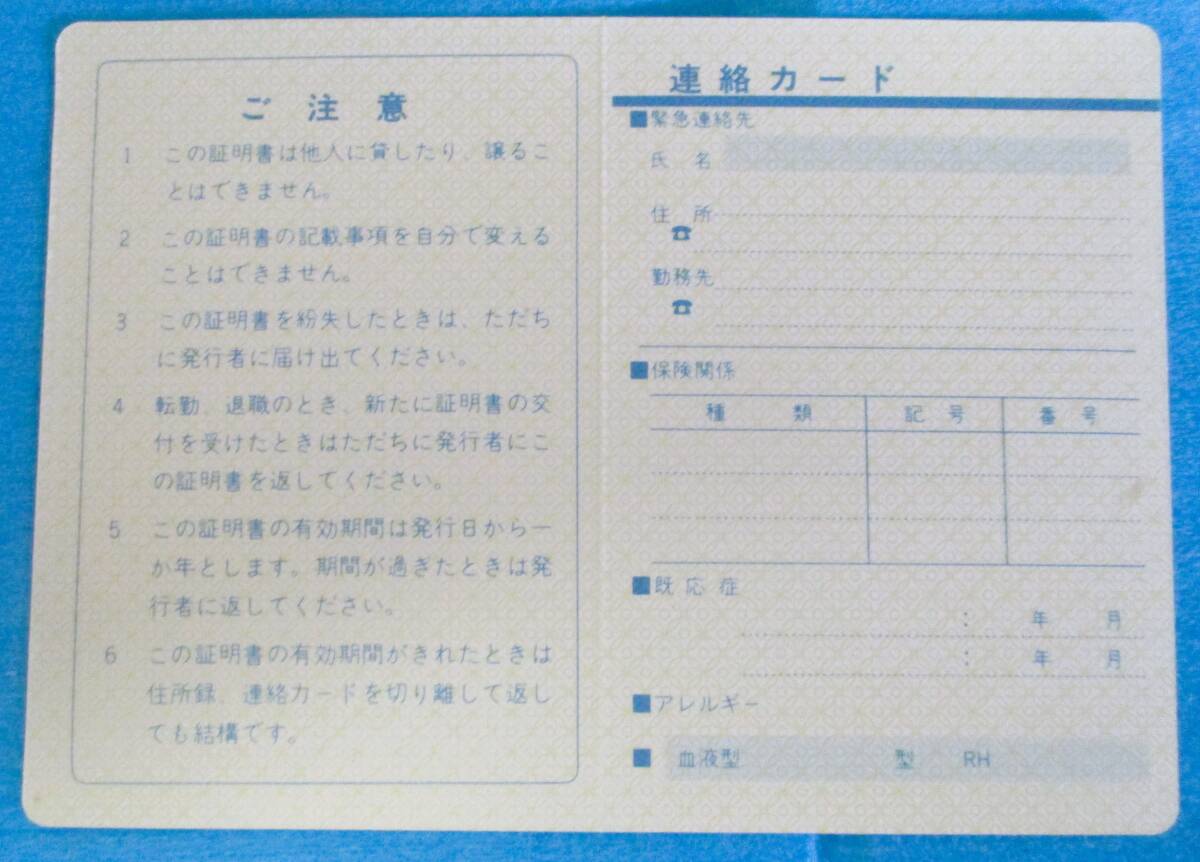 ご注意
1 この証明書は他人に貸したり、譲るこ
とはできません。
2 この証明書の記載事項を自分で変える
ことはできません。
3 この証明書を紛失したときは、ただち
に発行者に届け出てください。
4 転勤、退職のとき、新たに証明書の交
付を受けたときはただちに発行者にこ
の証明書を返してください。
5 この証明書の有効期間は発行日から一
か年とします。期間が過ぎたときは発
行者に返してください。
6 この証明書の有効期間がきれたときは
住所録、連絡カードを切り離して返し
ても結構です。
連絡カード
■緊急連絡先
氏名
住所
☎
勤務先
☎
■保険関係
種類 記号 番号
■既応症
: 年 月
: 年 月
■アレルギー
■ 血液型 型 RH